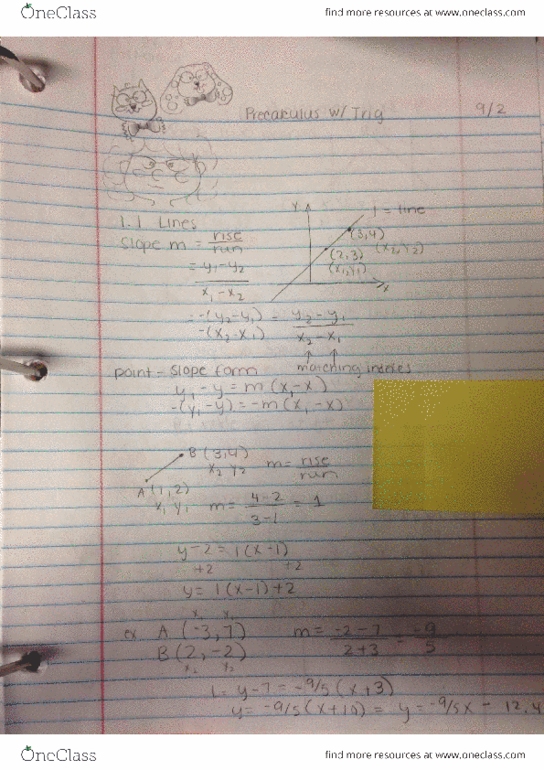 OneClass
find more resources at www.oneclass.com
Precalculus w/ Trig
9/2
1.1 Lines
Slope m = rise/run
= y₁-y₂ / x₁-x₂
= -(y₂-y₁) / -(x₂-x₁) = y₂-y₁ / x₂-x₁
matching indices
Y
l = line
(3,4)
(x₂,y₂)
(2,3)
(x₁,y₁)
x
point-slope form
y₁-y = m(x₁-x)
-(y₁-y) = -m(x₁-x)
B(3,4)
x₂ y₂
m = rise/run
A(1,2)
x₁ y₁
m = 4-2 / 3-1 = 1
y-2 = 1(x-1)
+2 +2
y = 1(x-1)+2
ex A (-3,7)
B(2,-2)
x₂ y₂
m = -2-7 / 2+3 = -9/5
L= y-7 = -9/5(x+3)
y = -9/5(x+10) = y = -9/5x - 12.4
OneClass
find more resources at www.oneclass.com